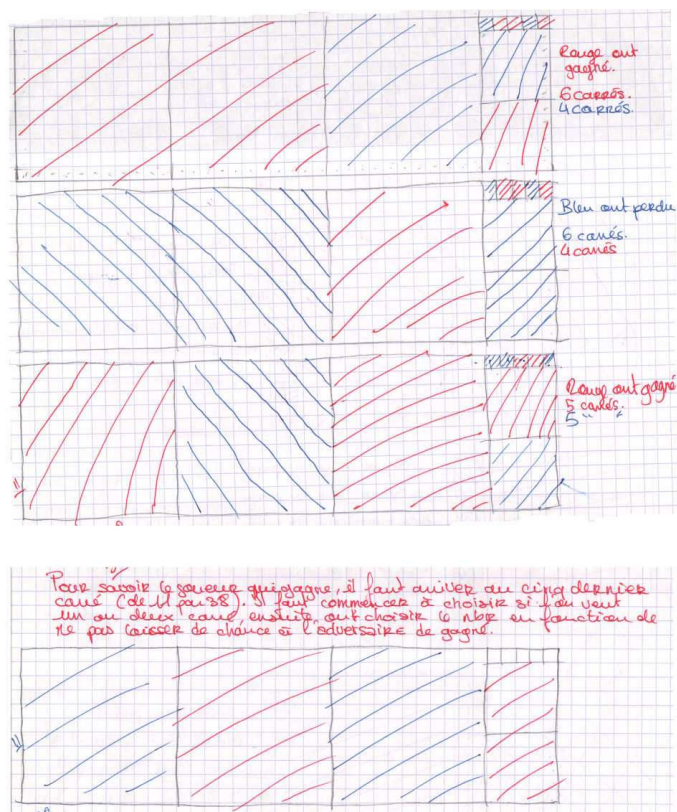 Rouge ont
gagné.
6 carrés.
4 carrés.
Bleu ont perdu
6 carrés.
4 carrés
Rouge ont gagné
5 carrés.
5 " "
Pour savoir le joueur qui gagne, il faut arriver au cinq dernier
carré (de 11 par 38). Il faut commencer à choisir si l'on veut
un ou deux carré, ensuite, ont choisir le nbr en fonction de
ne pas laisser de chance à l'adversaire de gagné.